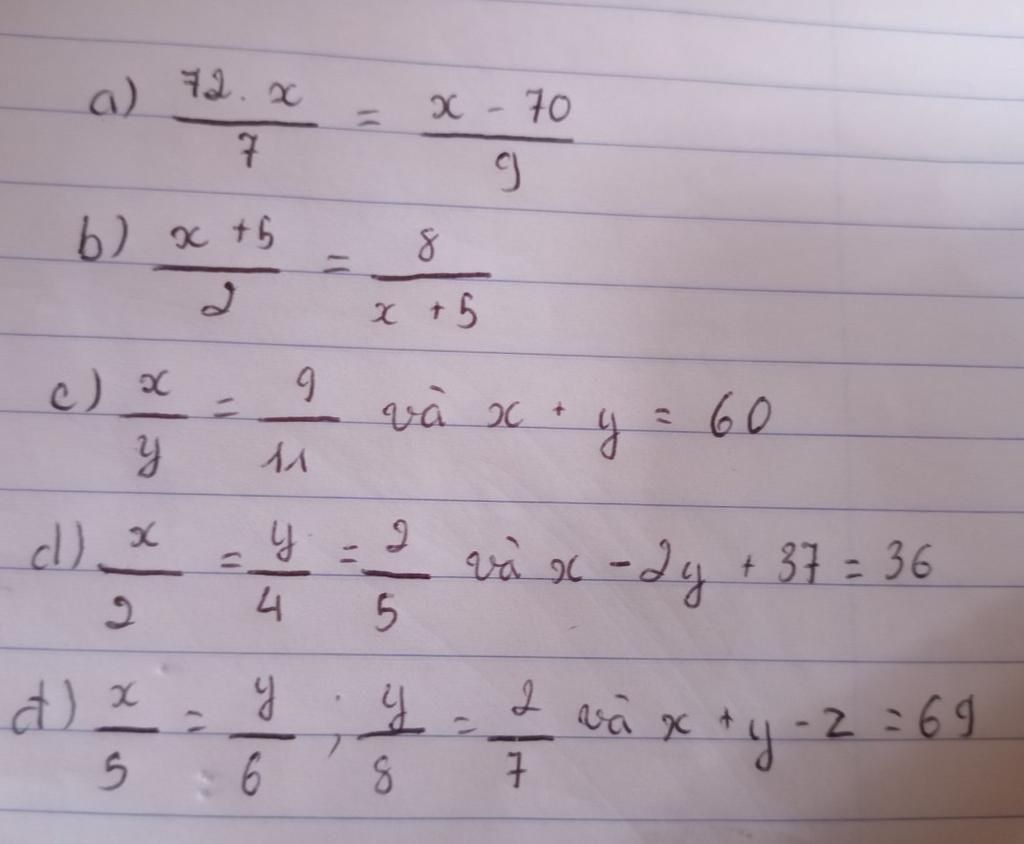 a) 72.x/7 = x - 70/9
b) x + 5/2 = 8/x + 5
c) x/y = 9/11 và x + y = 60
d) x/2 = y/4 = 2/5 và x - 2y + 37 = 36
đ) x/5 = y/6 ; y/8 = 2/7 và x + y - z = 69